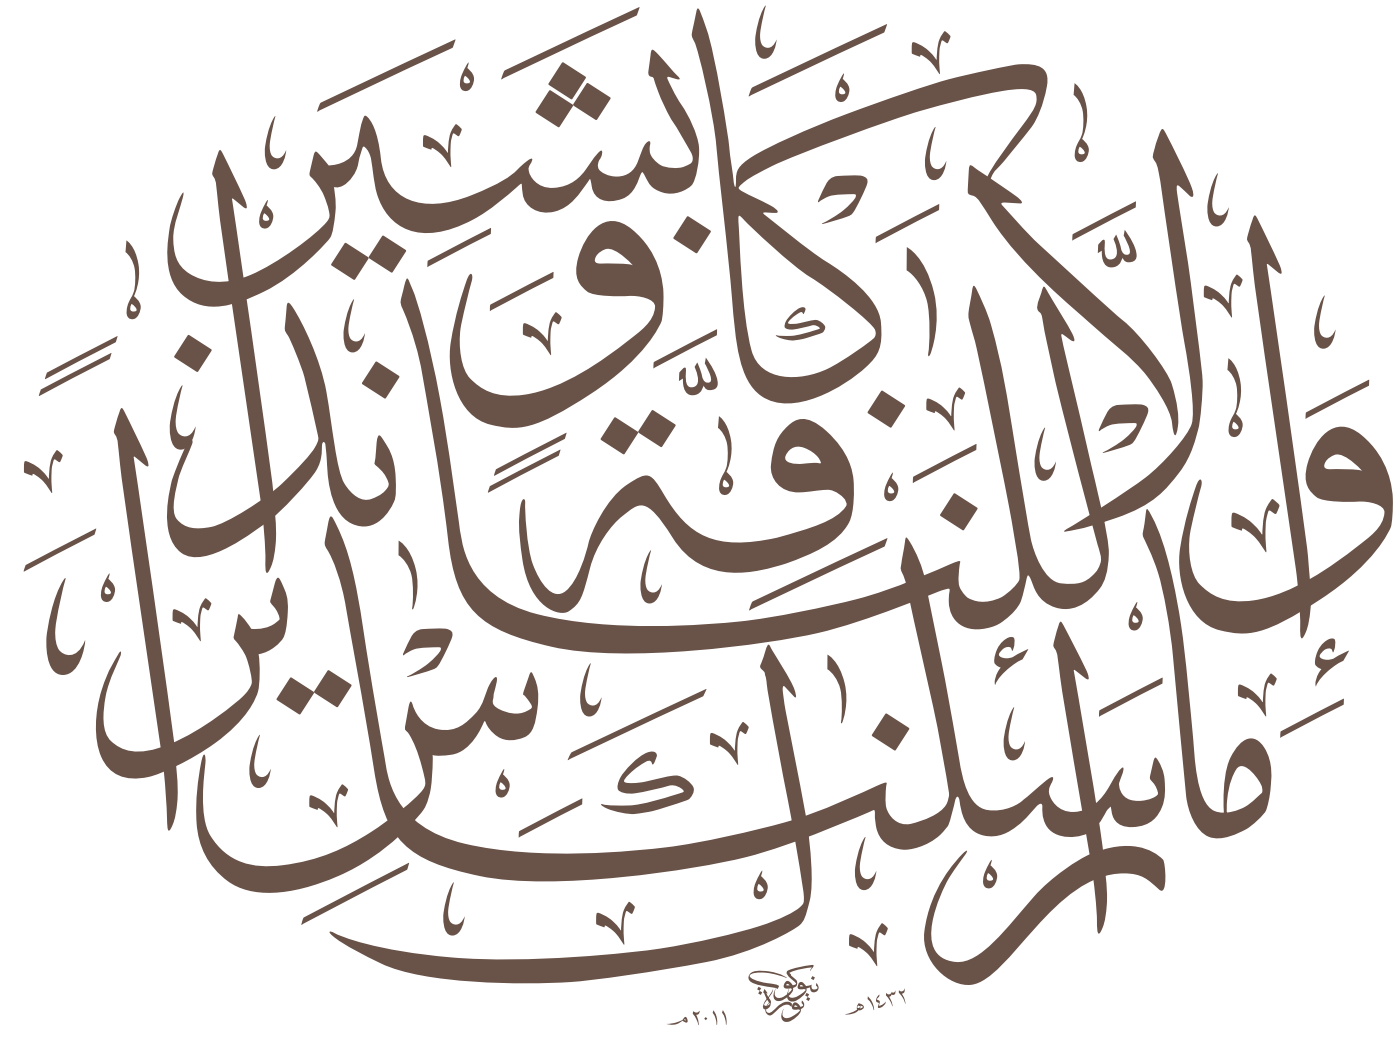 وَمَا أَرْسَلْنَاكَ إِلَّا كَافَّةً لِلنَّاسِ بَشِيرًا وَنَذِيرًا
١٤٣٢هـ
٢٠١١م